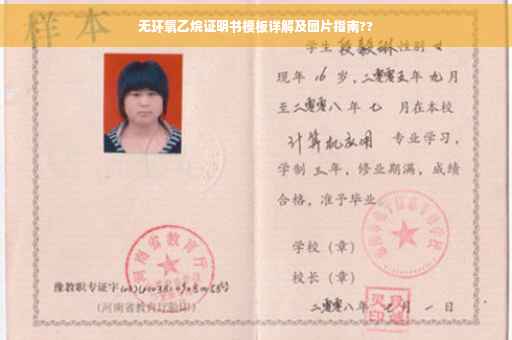 无环氧乙烷证明书模板详解及图片指南??
样本
学生段毅琳性别女
现年16岁，二零零五年九月
至二零零八年七月在本校
计算机应用专业学习，
学制三年，修业期满，成绩
合格，准予毕业
学校（章）
校长（章）
二零零八年七月一日
河南省教育厅
豫教职专证字
(河南省教育厅验印)